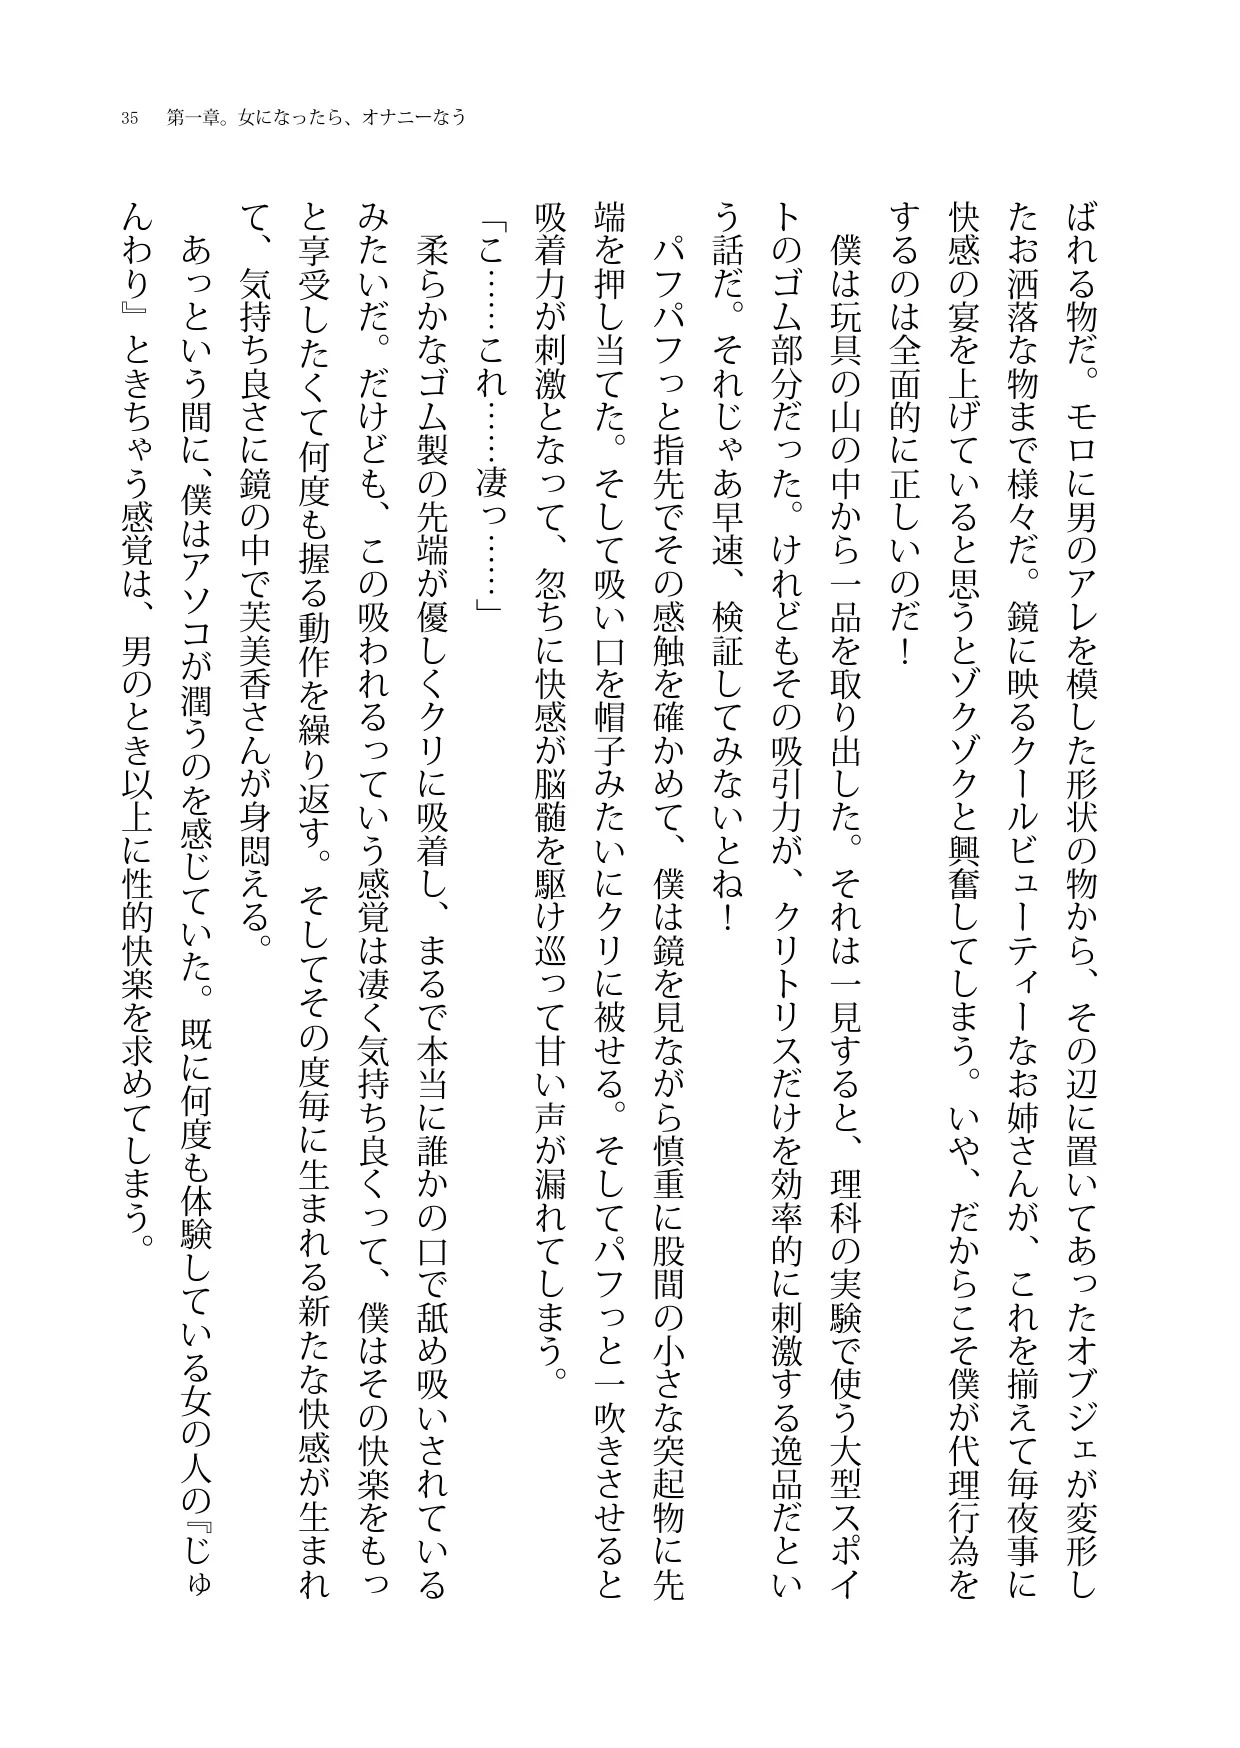 35　第一章。女になったら、オナニーなう
ばれる物だ。モロに男のアレを模した形状の物から、その辺に置いてあったオブジェが変形し
たお洒落な物まで様々だ。鏡に映るクールビューティーなお姉さんが、これを揃えて毎夜事に
快感の宴を上げていると思うとゾクゾクと興奮してしまう。いや、だからこそ僕が代理行為を
するのは全面的に正しいのだ！
僕は玩具の山の中から一品を取り出した。それは一見すると、理科の実験で使う大型スポイ
トのゴム部分だった。けれどもその吸引力が、クリトリスだけを効率的に刺激する逸品だとい
う話だ。それじゃあ早速、検証してみないとね！
パフパフっと指先でその感触を確かめて、僕は鏡を見ながら慎重に股間の小さな突起物に先
端を押し当てた。そして吸い口を帽子みたいにクリに被せる。そしてパフっと一吹きさせると
吸着力が刺激となって、忽ちに快感が脳髄を駆け巡って甘い声が漏れてしまう。
「こ……これ……凄っ……」
柔らかなゴム製の先端が優しくクリに吸着し、まるで本当に誰かの口で舐め吸いされている
みたいだ。だけども、この吸われるっていう感覚は凄く気持ち良くって、僕はその快楽をもっ
と享受したくて何度も握る動作を繰り返す。そしてその度毎に生まれる新たな快感が生まれ
て、気持ち良さに鏡の中で芙美香さんが身悶える。
あっという間に、僕はアソコが潤うのを感じていた。既に何度も体験している女の人の『じゅ
んわり』ときちゃう感覚は、男のとき以上に性的快楽を求めてしまう。